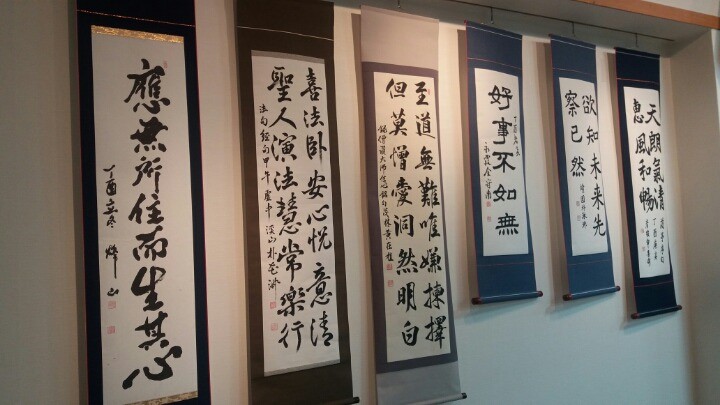 應無所住而生其心
丁酉立冬
喜法臥安心悅意清
聖人演法慧常樂行
法句經句甲午
至道無難唯嫌揀擇
但莫憎愛洞然明白
好事不如無
丁酉
欲知未来先
察已然
天朗氣清
惠風和暢